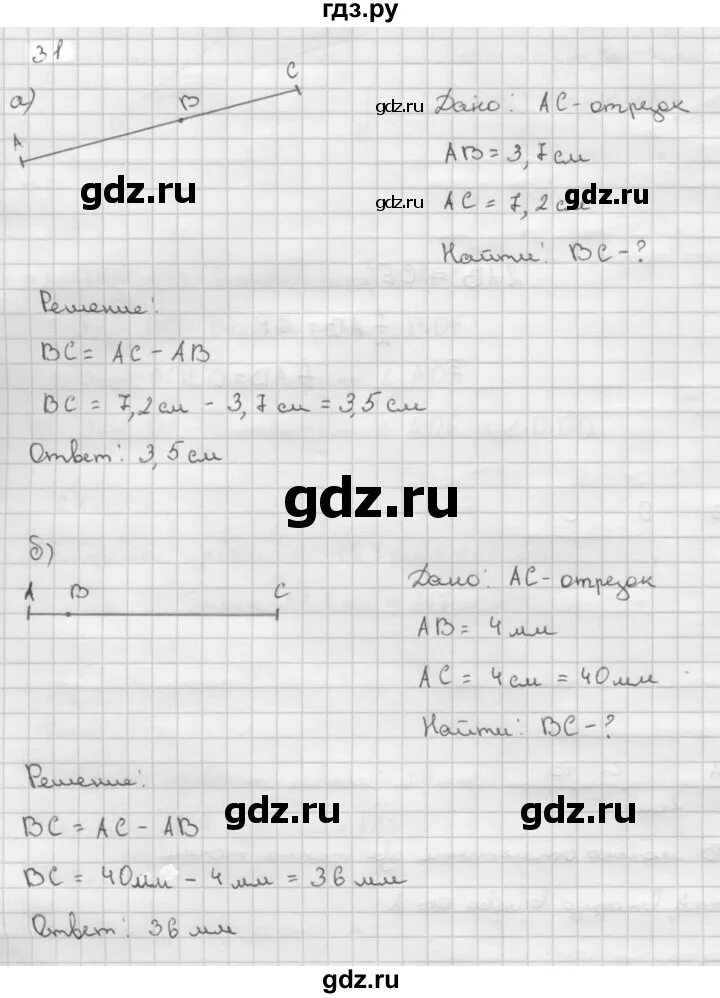 гдз.ру
31
а)
A B C
Дано: AC - отрезок
AB = 3,7 см
AC = 7,2 см
Найти: BC - ?
gdz.ru
gdz.ru
gdz.ru
gdz.ru
Решение:
BC = AC - AB
BC = 7,2 см - 3,7 см = 3,5 см
Ответ: 3,5 см
gdz.ru
б)
A B C
Дано: AC - отрезок
AB = 4 мм
AC = 4 см = 40 мм
Найти: BC - ?
Решение:
gdz.ru
gdz.ru
BC = AC - AB
BC = 40 мм - 4 мм = 36 мм
Ответ: 36 мм
gdz.ru